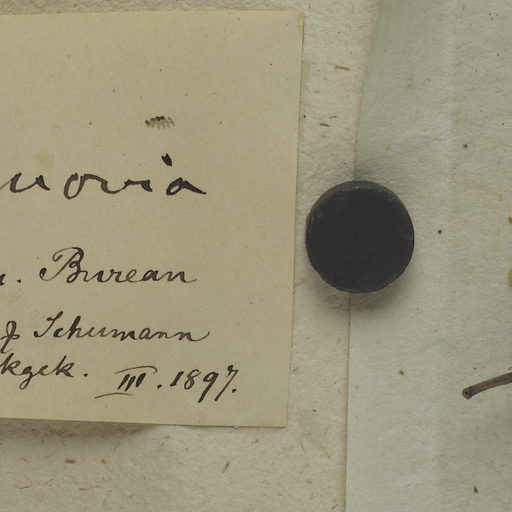 novia
n. Bureau
f Schumann
kgek. III. 1897.